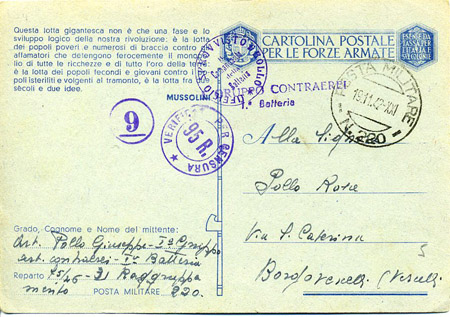 Questa lotta gigantesca non è che una fase e lo
sviluppo logico della nostra rivoluzione: è la lotta
dei popoli poveri e numerosi di braccia contro gli
affamatori che detengono ferocemente il monopo-
lio di tutte le ricchezze e di tutto l'oro della terra;
è la lotta dei popoli fecondi e giovani contro i po-
poli isteriliti e volgenti al tramonto, è la lotta fra due
secoli e due idee.
MUSSOLINI
CARTOLINA POSTALE
PER LE FORZE ARMATE
ESENTE DA
TASSA PER
L'ITALIA E
SUE COLONIE
GRUPPO CONTRAEREI
1.ª Batteria
POSTA MILITARE
N. 220
9
VERIFICATO PER CENSURA
95 R.
Alla Sig
Pollo Rosa
Via S. Caterina
Borgovercelli (Vercelli)
Grado, Cognome e Nome del mittente:
Art. Pollo Giuseppe - Iº Gruppo
Art. contraerei - Iª Batteria
Reparto 75/46 - 21 Raggruppa
mento POSTA MILITARE 220.